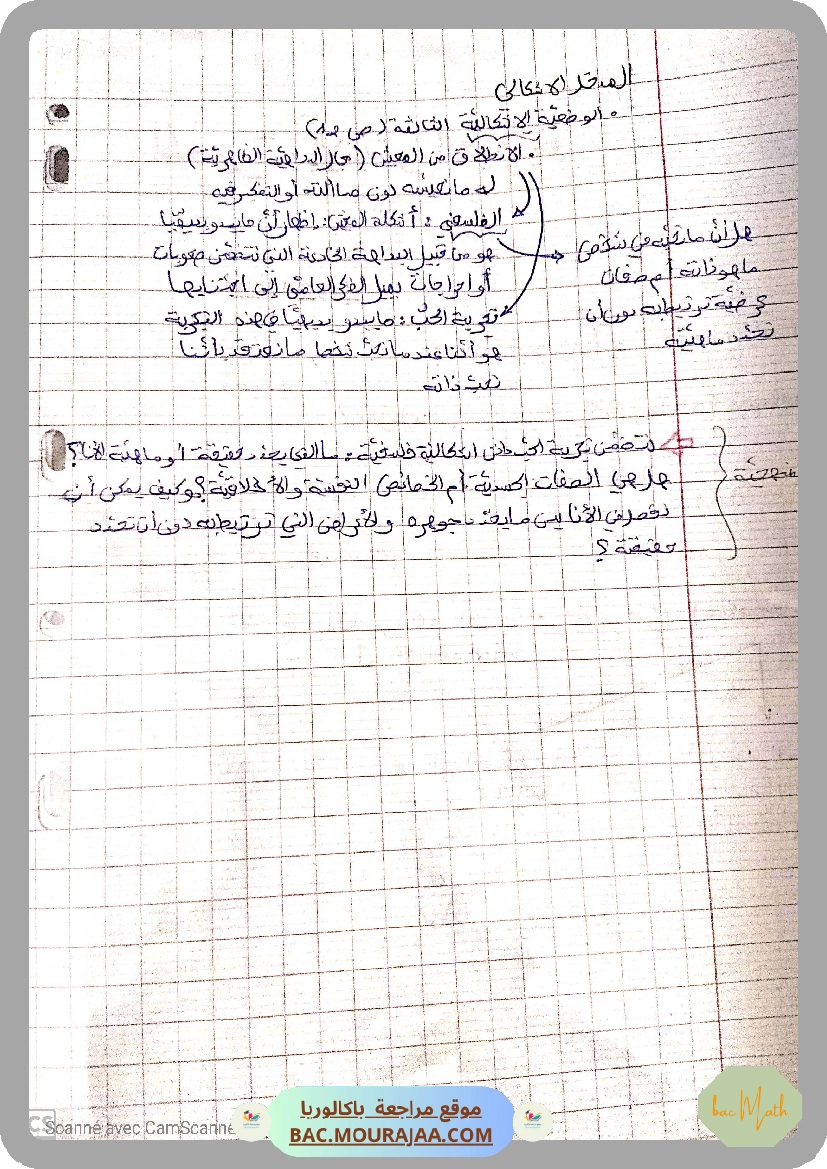 المدخل الإشكالي
• الوضعية الإشكالية الثالثة (ص
• الانطلاق من المعيش (مجال البداهة الظاهرية)
ما نعيشه دون مساءلته أو التفكير فيه
الفلسفي: أشكلة المعيش: إظهار أن ما يبدو بديهيا
هو من قبيل البداهة الخادعة التي تتضمن صعوبات
أو احراجات يميل الفكر العامي إلى اجتنابها
تجربة الحب: ما يبدو بديهيا في هذه التجربة
هو أننا عندما نحب شخصا ما نعتقد بأننا
نحب ذاته
هل أن ما نحبه في شخص
ما هو ذاته أم صفات
عرضية ترتبط به دون أن
تحدد ماهيته
تتضمن تجربة الحب إشكالية فلسفية: ما الذي يحدد حقيقة أو ماهية الأنا؟
هل هي الصفات الجسدية أم الخصائص النفسية والأخلاقية؟ وكيف يمكن أن
في الأنا بين ما يعد جوهره والأعراض التي ترتبط به دون أن تحدد
حقيقة؟
منهجية
CS Scanné avec CamScanne
موقع مراجعة باكالوريا
BAC.MOURAJAA.COM
bac Math